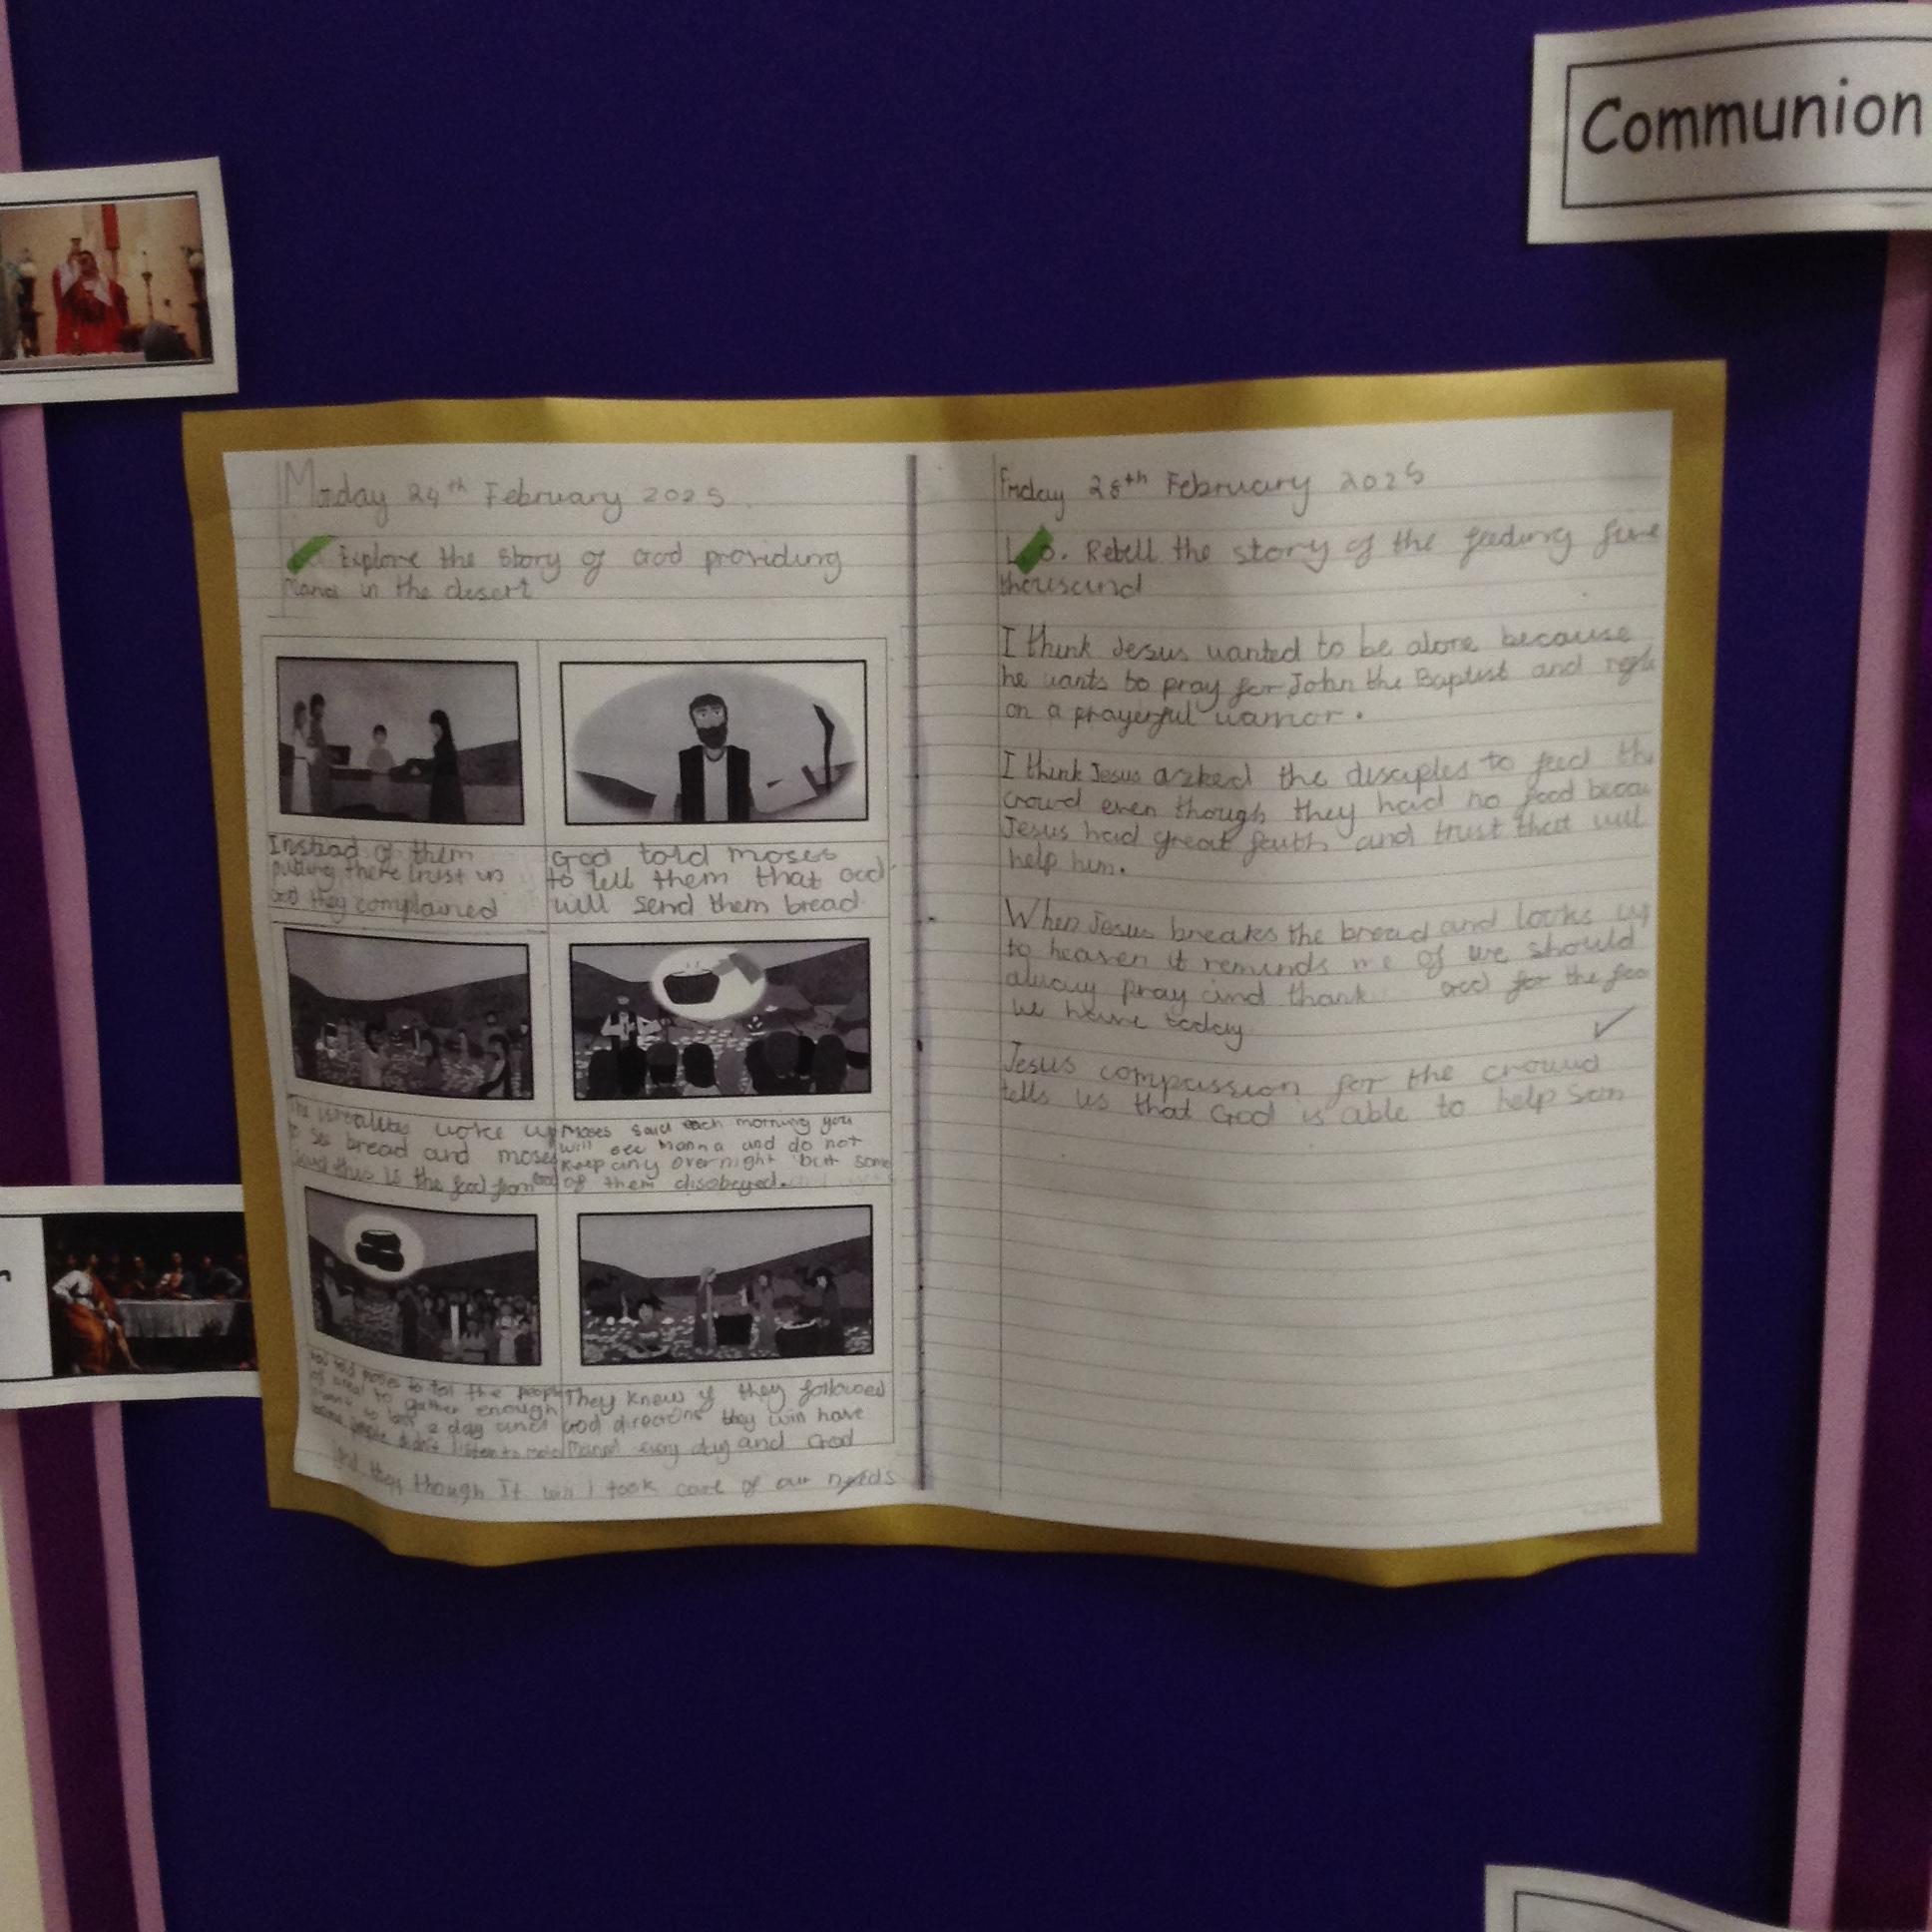 Communion
Monday 24th February 2025.
Explore the story of God providing
Mana in the desert
Instead of them
putting there trust in
God they complained
God told moses
to tell them that God
will send them bread
The woke up
to see bread and moses
said this is the food from God
Moses said each morning you
will see Manna and do not
keep any overnight but some
of them disobeyed.
God told moses to tell the people
to gather enough
to last 2 day and
some people didn't listen to
They knew if they followed
God directions they will have
Manna every day and God
though It will took care of our needs
Friday 28th February 2025
L.o. Retell the story of the feeding five
thousand
I think Jesus wanted to be alone because
he wants to pray for John the Baptist and
on a prayerful
I think Jesus asked the disciples to feed the
crowd even though they had no food becau
Jesus had great faith and trust that will
help him.
When Jesus breaks the bread and looks up
to heaven it reminds me of we should
alway pray and thank God for the foo
we have today
Jesus compassion for the crowd
tells us that God is able to help som